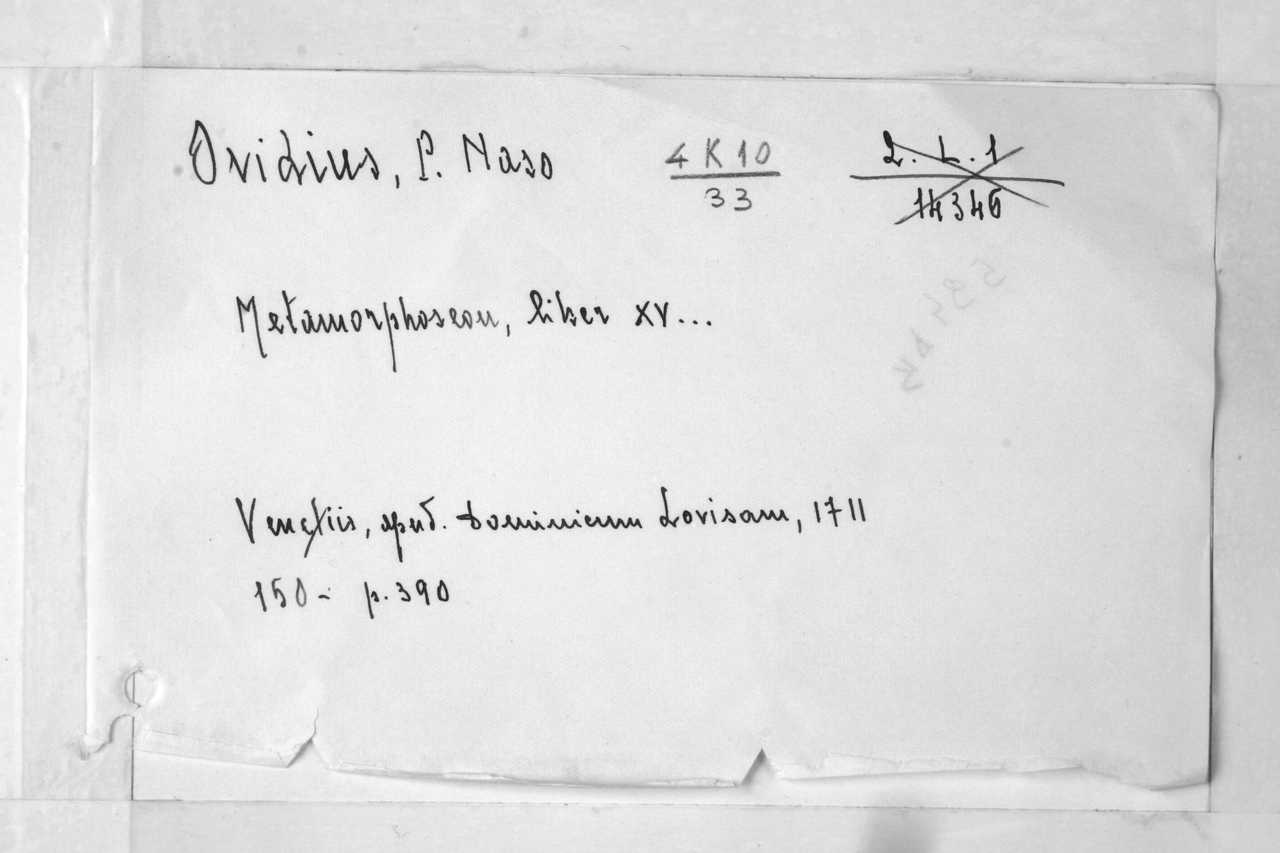 Ovidius, P. Naso
4 K 10
33
2. L. 1
14346
Metamorphoseon, liber XV...
Venetiis, apud. Dominicum Lovisam, 1711
150- p. 390